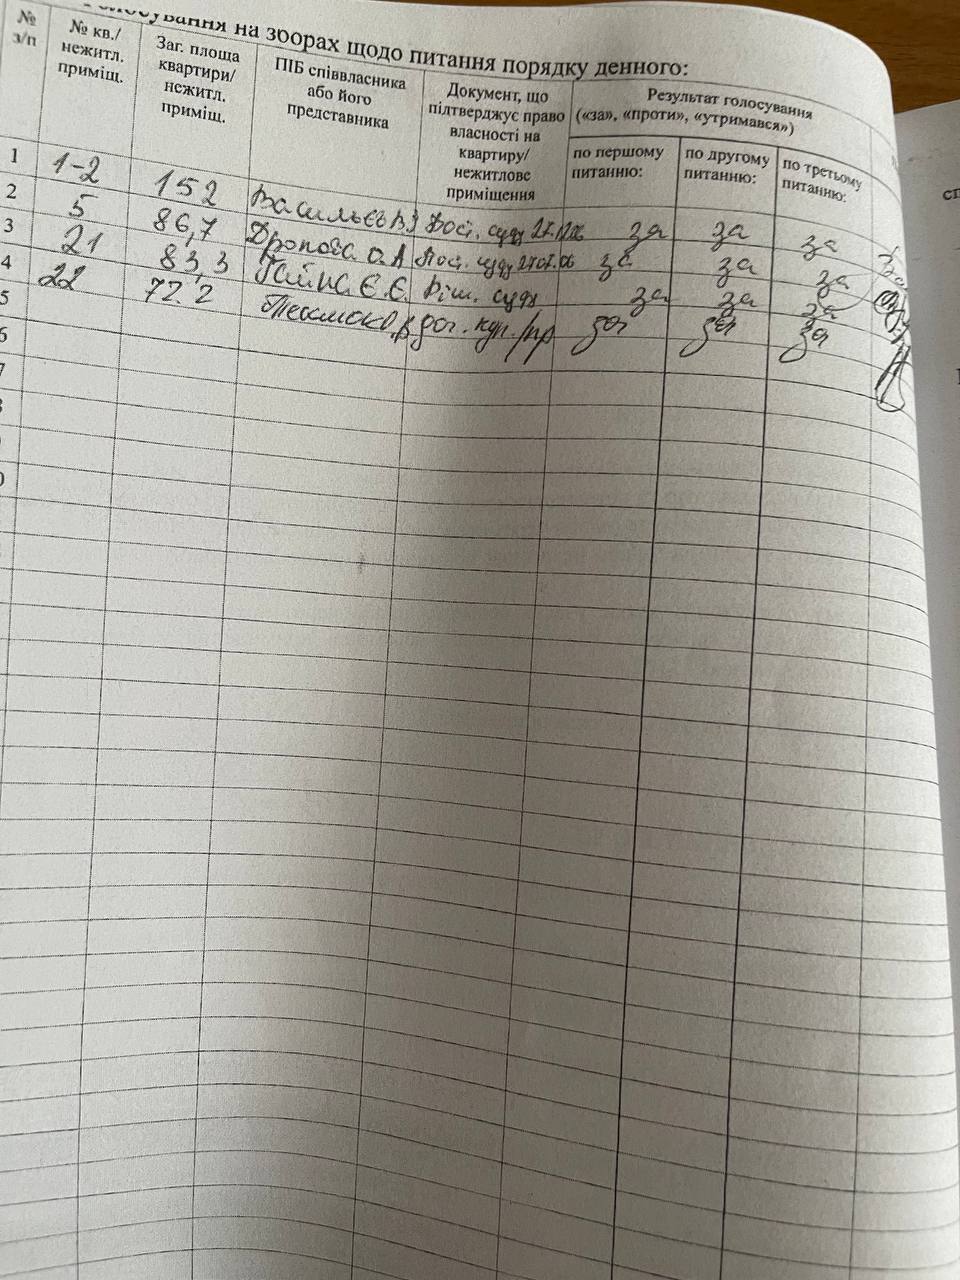 голосування на зборах щодо питання порядку денного:
№ з/п
№ кв./ нежитл. приміщ.
Заг. площа квартири/ нежитл. приміщ.
ПІБ співвласника або його представника
Документ, що підтверджує право власності на квартиру/ нежитлове приміщення
Результат голосування
(«за», «проти», «утримався»)
по першому питанню:
по другому питанню:
по третьому питанню:
1 1-2 152 Васильєв суду за за за
2 5 86,7 О.А Пос. суду 27.07.06 за за за
3 21 83,3 Є.Є. Ріш. суду за за за
4 22 72.2 дог. куп./пр за за за
5
6